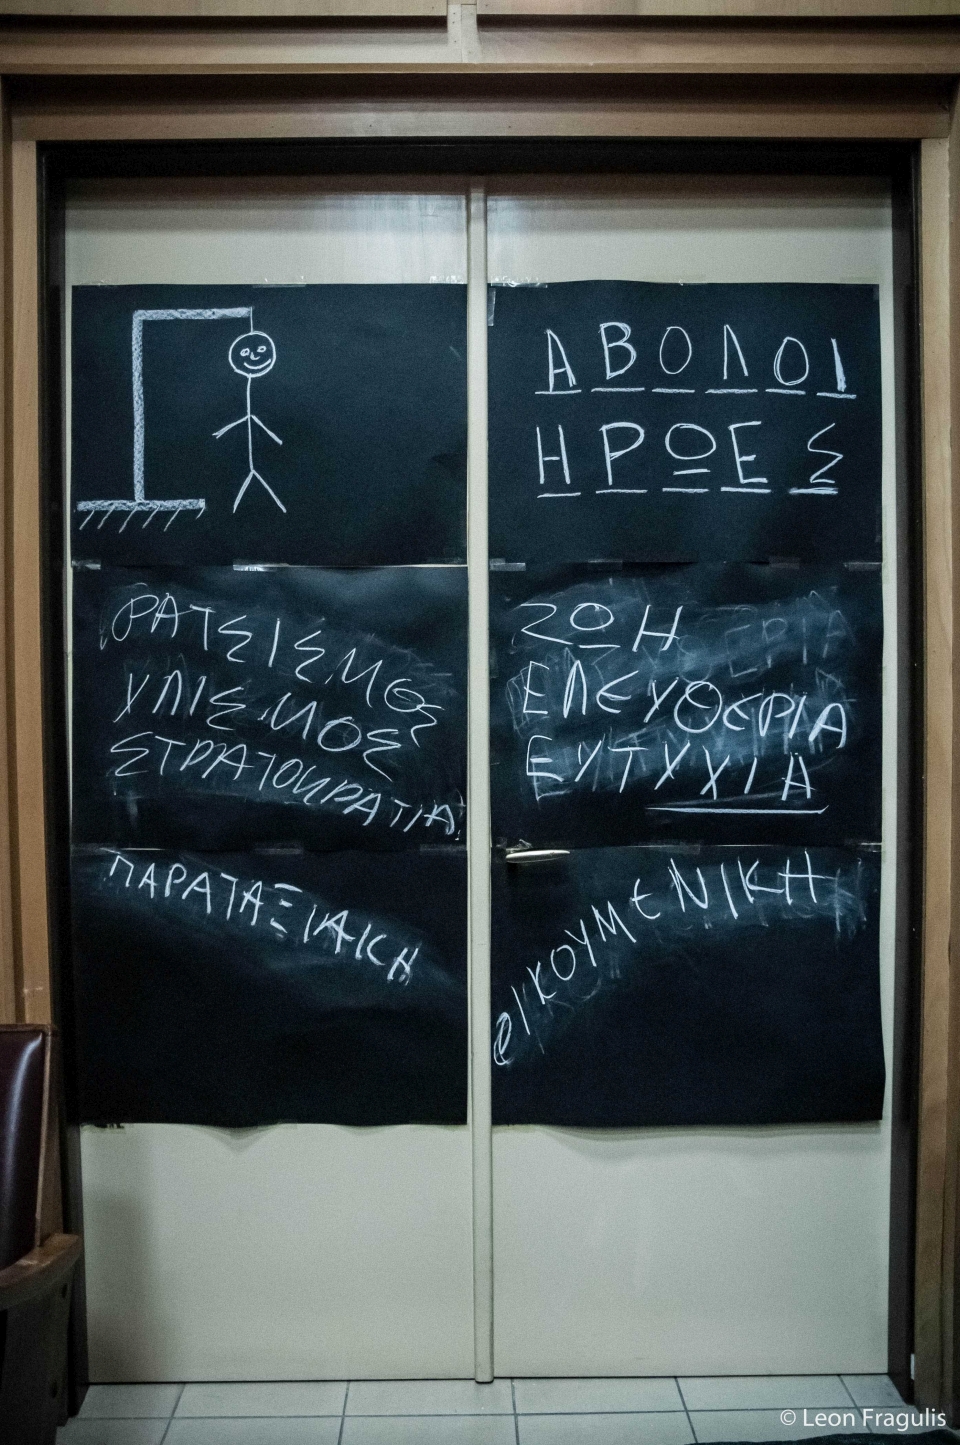 ΑΒΟΛΟΙ
ΗΡΩΕΣ
ΡΑΤΣΙΣΜΟΣ
ΧΛΙΣΜΟΣ
ΣΤΡΑΤΟΚΡΑΤΙΑ
ΖΩΗ
ΕΛΕΥΘΕΡΙΑ
ΕΥΤΥΧΙΑ
ΠΑΡΑΤΑΞΙΑΚΗ
ΟΙΚΟΥΜΕΝΙΚΗ
© Leon Fragulis